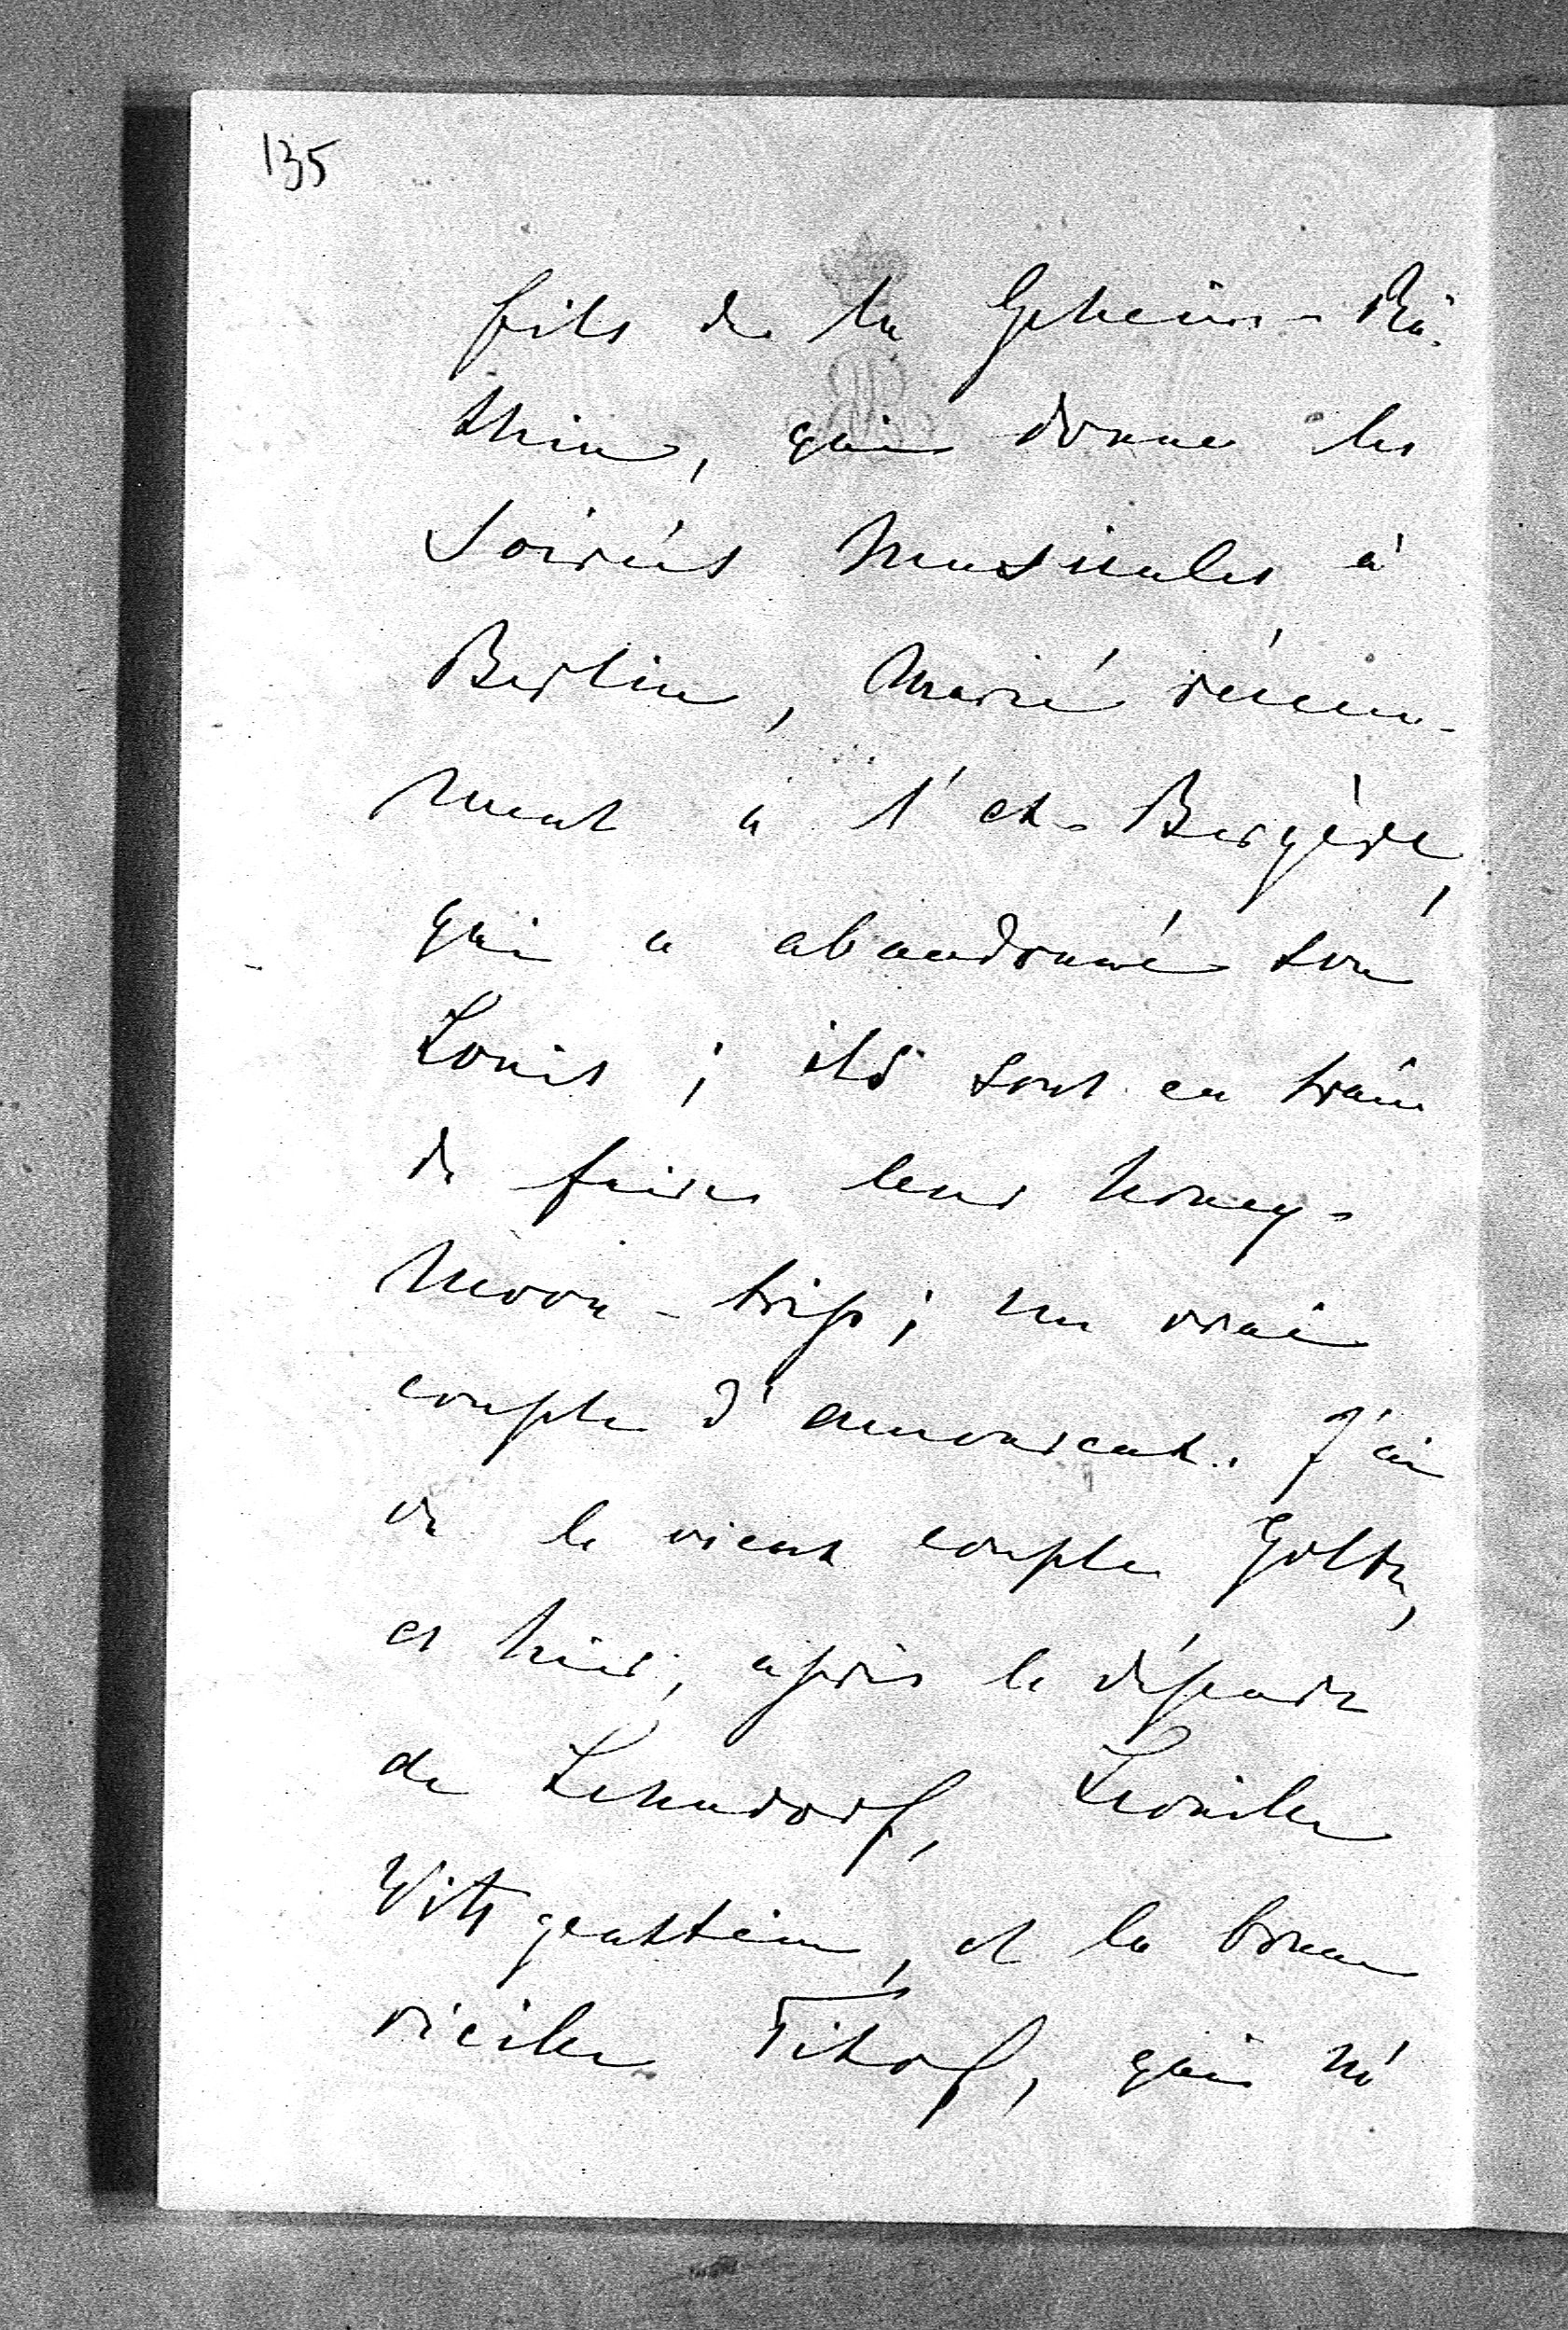 135
fils de la Geheim-Rä-
thin, qui donne les
soirées musicales à
Berlin, marié récem-
ment à l'ex-Bergère,
qui a abandonné son
Louis ; ils sont en train
de faire leur honey-
moon-trip ; un vrai
couple d'amoureux. J'ai
vu le vieux couple Goltz,
et hier, après le départ
de Lehndorf, Léonile
Wittgenstein, et la bonne
vieille Titof, qui m'